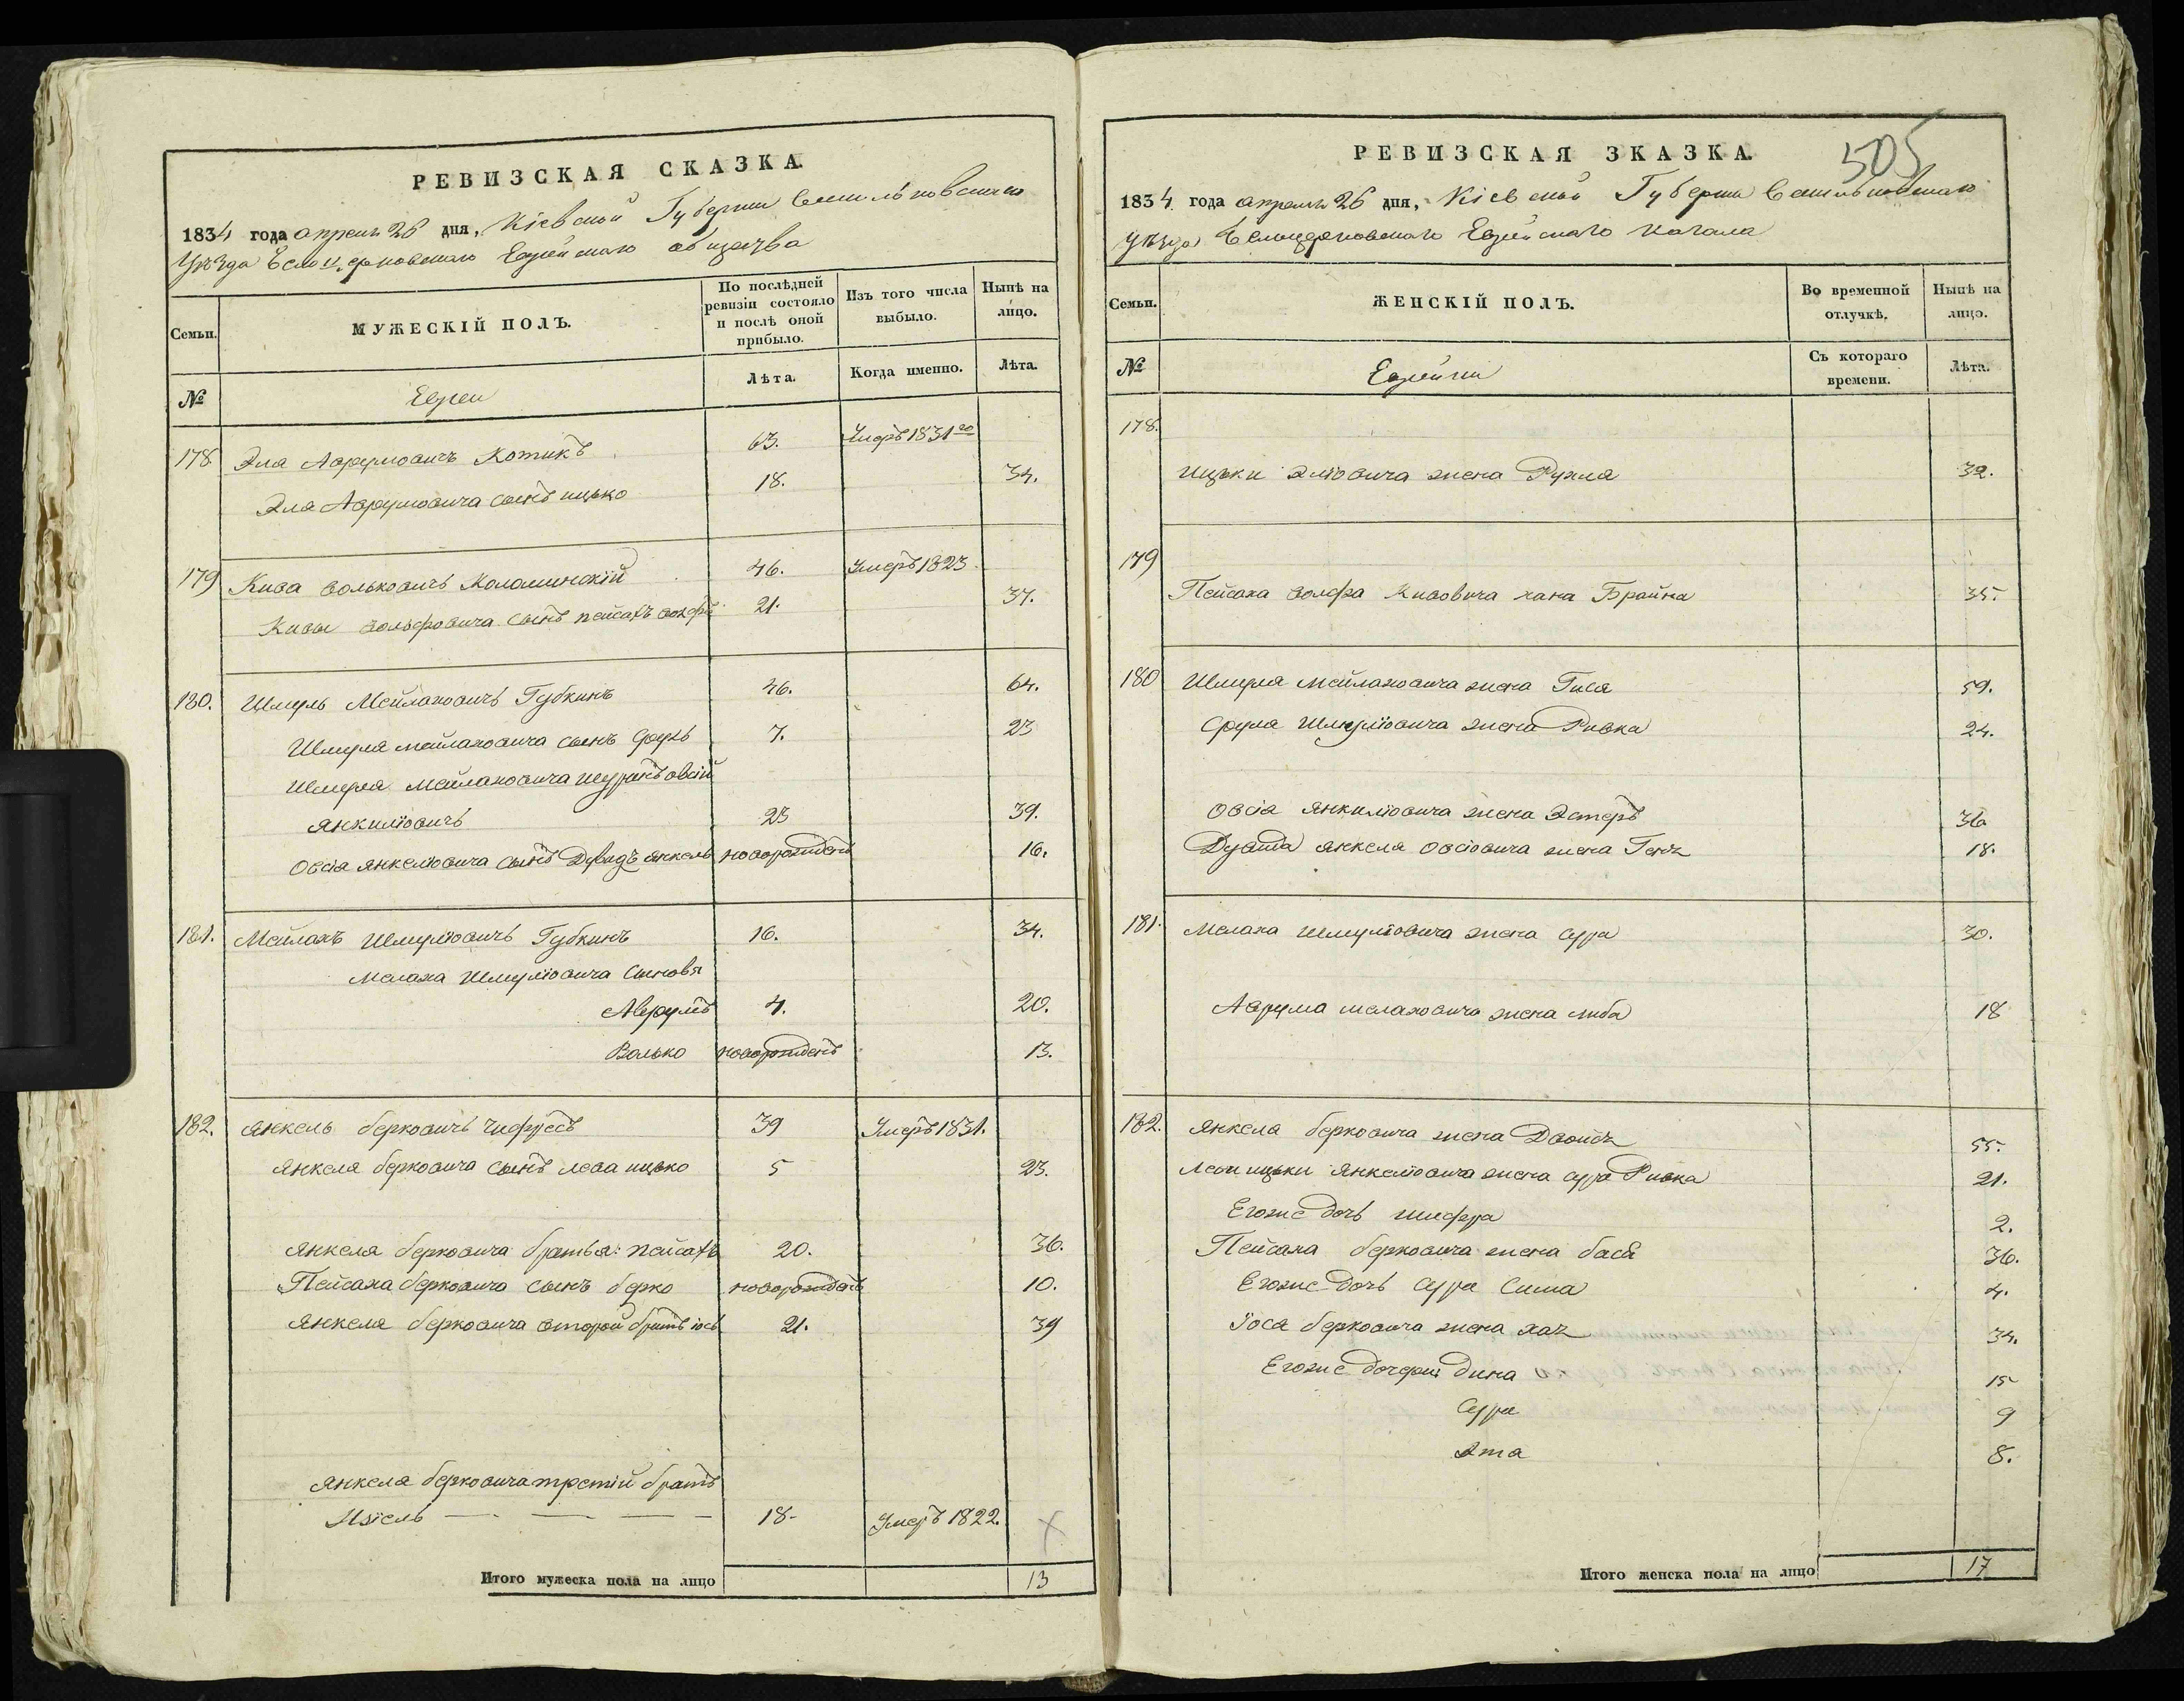 РЕВИЗСКАЯ СКАЗКА.
1834 года апреля 26 дня, Кіевской Губерніи Васильковскаго
Уѣзда Белоцерковскаго Еврейскаго общества
Семьи.
МУЖЕСКІЙ ПОЛЪ.
По послѣдней ревизіи состояло и послѣ оной прибыло.
Изъ того числа выбыло.
Нынѣ на лицо.
№
Евреи
Лѣта.
Когда именно.
Лѣта.
178 Эля Аврумовичъ Котикъ 63. Умеръ 1831го
Эля Аврумовича сынъ ицько 18. 34.
179 Кива вольковичъ Коломинскій 46. Умеръ 1823
Кивы вольфовича сынъ пейсахъ вольфъ 21. 37.
180. Шмуль Мейлаховичъ Губкинъ 46. 64.
Шмуля мейлаховича сынъ Сруль 7. 23
Шмуля Мейлаховича шуринъ овсій
янкиліовичъ 23 39.
Овсія янкеліовича сынъ Дувидъ янкель новорожденъ 16.
181. Мейлахъ Шмуліовичъ Губкинъ 16. 34.
Мелаха Шмуліовича сыновя
Аврумъ 4. 20.
Волько новорожденъ 13.
182. янкель берковичъ 39 Умеръ 1831.
янкеля берковича сынъ лева ицько 5 23.
янкеля берковича братья: пейсахъ 20. 36.
Пейсаха берковича сынъ берко новорожденъ 10.
янкеля берковича второй братъ іось 21. 39
янкеля берковича третій братъ
Изіель 18- Умеръ 1822. X
Итого мужеска пола на лицо 13
505
РЕВИЗСКАЯ ЗКАЗКА.
1834 года апреля 26 дня, Кіевской Губерніи Васильковскаго
уѣзда Белоцерковскаго Еврейскаго кагала
Семьи.
ЖЕНСКІЙ ПОЛЪ.
Во временной отлучкѣ.
Нынѣ на лицо.
№
Еврейки
Съ котораго времени.
Лѣта.
178.
ицьки эліовича жена Рухля 32.
179
Пейсаха волфа Кивовича хана Брайна 35.
180 Шмуля мейлаховича жена Гися 59.
Сруля Шмуліовича жена Ривка 24.
Овсія янкиліовича жена Эстеръ 36
Дувида янкеля Овсіовича жена Геня 18.
181. Мелаха шмуліовича жена сура 30.
Аврума мелаховича жена либа 18
182. янкеля берковича жена Двойся 55.
леви ицьки янкеліовича жена сура Ривка 21.
Егоже дочь шифра 2.
Пейсаха берковича жена бася 36.
Егоже дочь сура Сима 4.
Іося берковича жена хая 34.
Егоже дочери: дина 15
сура 9
эта 8.
Итого женска пола на лицо 17